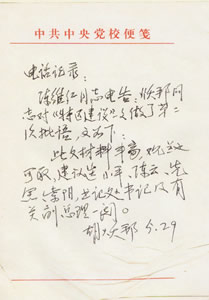 中共中央党校便笺
电话记录：
陈维仁同志电告：耀邦同
志对《特区建设》又做了第二
次批语，文如下：
此文材料丰富，观点
可取，建议送小平、陈云、先
念、紫阳，书记处书记及有
关副总理一阅。
胡耀邦 5.29